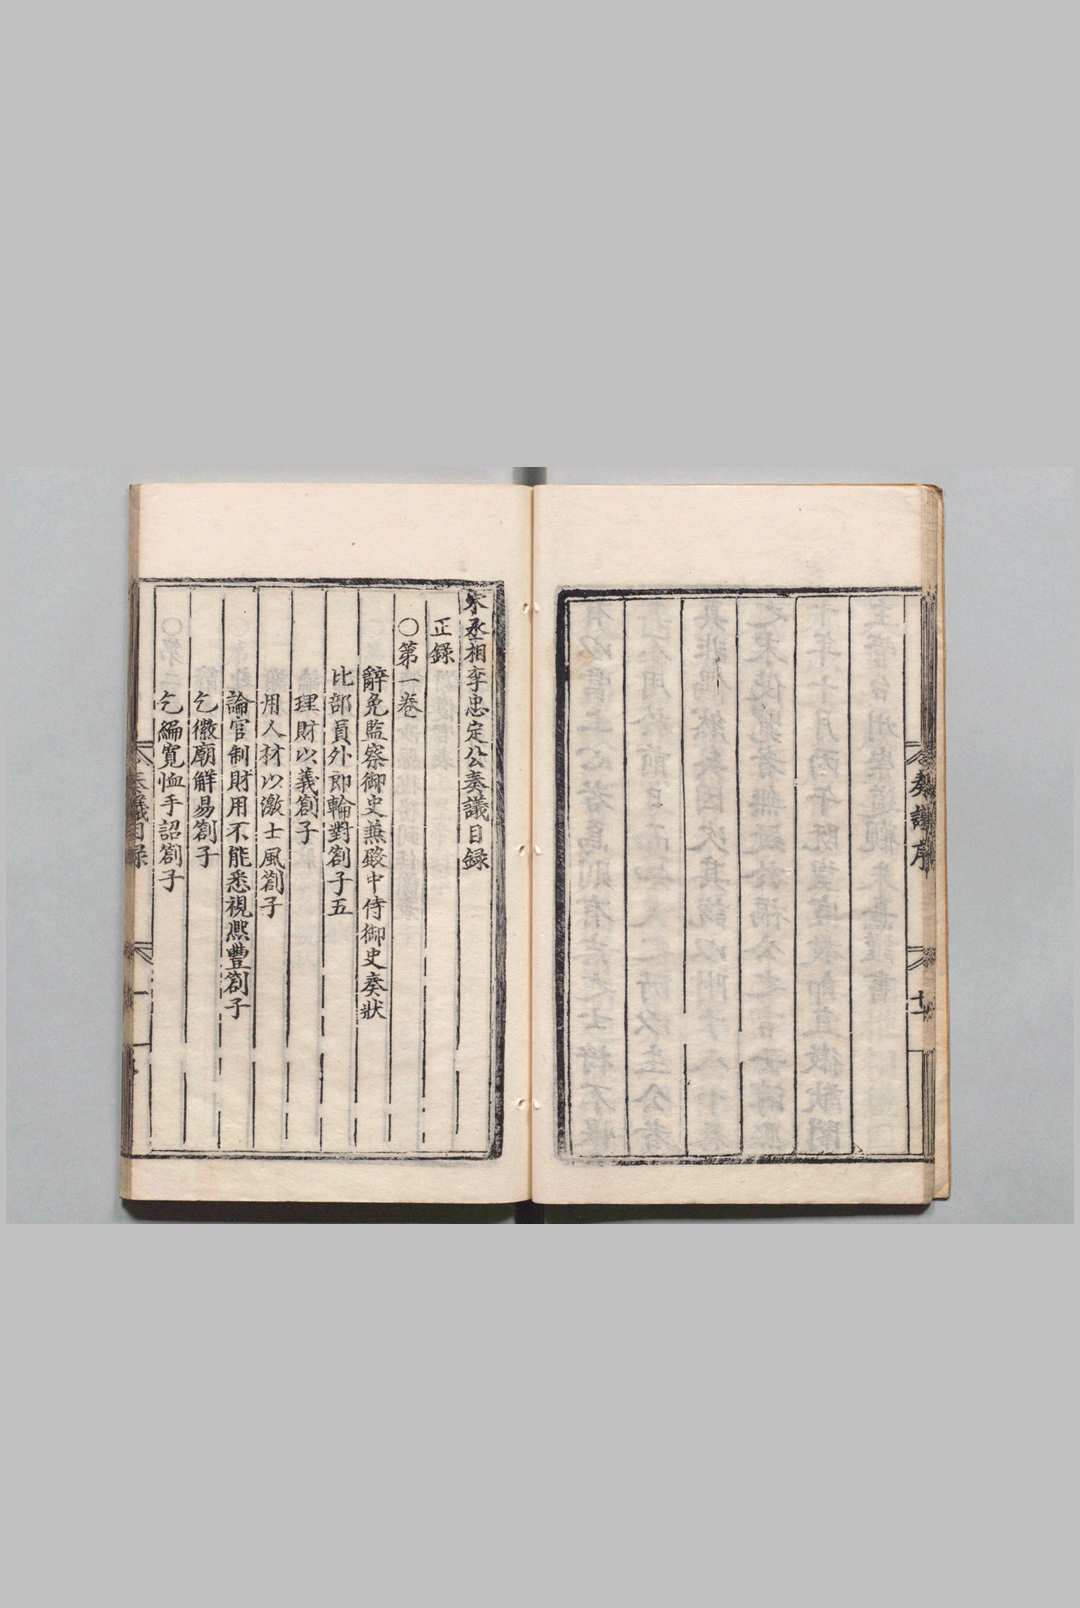 奏議序
十一
宋丞相李忠定公奏議目録
正録
○第一卷
辭免監察御史兼殿中侍御史奏狀
比部員外郎輪對劄子五
理財以義劄子
用人材以激士風劄子
論官制財用不能悉視熈豐劄子
乞徹廟觧易劄子
乞編寬恤手詔劄子
奏議目録
一